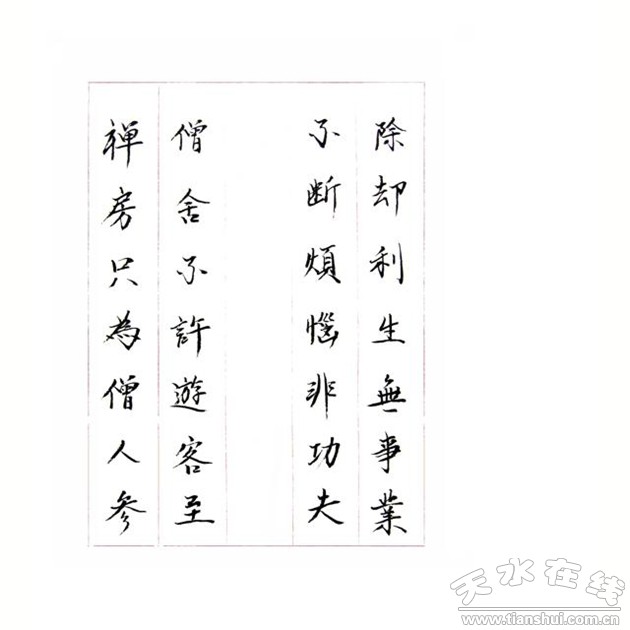 除却利生無事業
不断煩惱非功夫
僧舍不許遊客至
禅房只為僧人参
天水在线
www.tianshui.com.cn